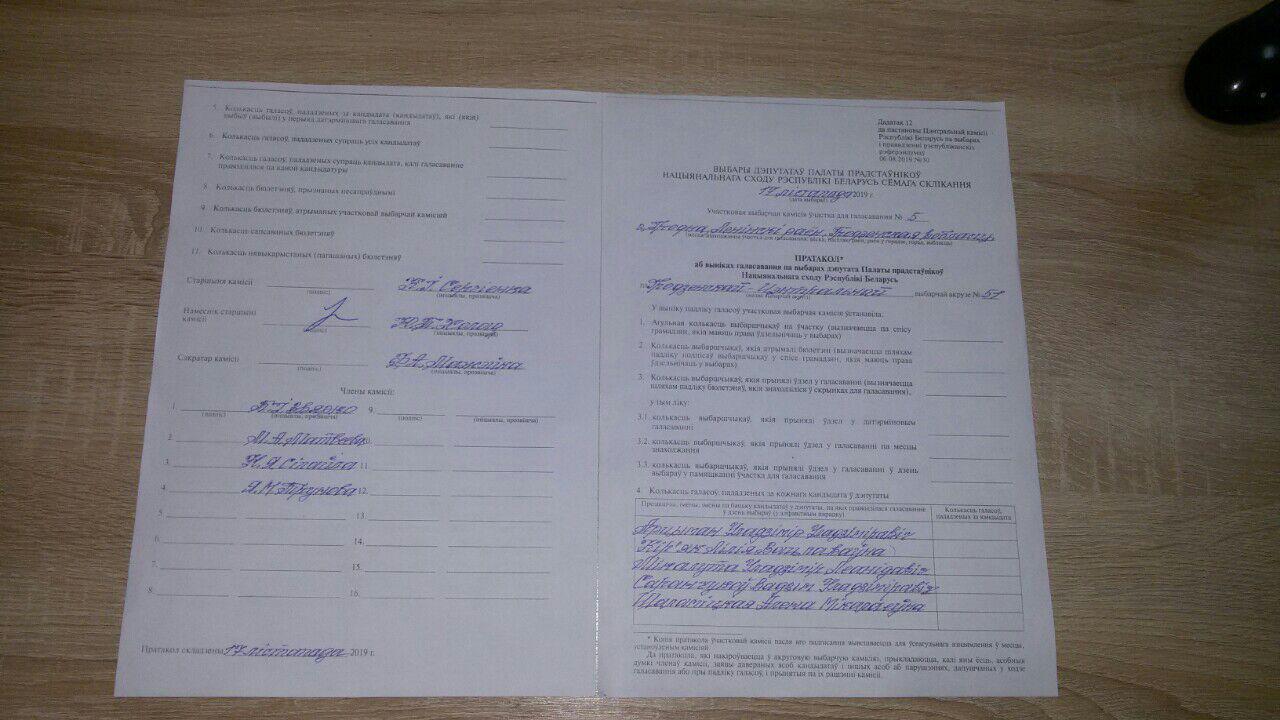 5. Колькасць галасоў, пададзеных за кандыдата (кандыдатаў), які (якія)
выбыў (выбылі) у перыяд датэрміновага галасавання
6. Колькасць галасоў, пададзеных супраць усіх кандыдатаў
7. Колькасць галасоў, пададзеных супраць кандыдата, калі галасаванне
праводзілася па адной кандыдатуры
8. Колькасць бюлетэняў, прызнаных несапраўднымі
9. Колькасць бюлетэняў, атрыманых участковай выбарчай камісіяй
10. Колькасць сапсаваных бюлетэняў
11. Колькасць нявыкарыстаных (пагашаных) бюлетэняў
Старшыня камісіі
(подпіс) (ініцыялы, прозвішча)
Намеснік старшыні
камісіі
(подпіс) (ініцыялы, прозвішча)
Сакратар камісіі
(подпіс) (ініцыялы, прозвішча)
Члены камісіі:
1. 9.
(подпіс) (ініцыялы, прозвішча) (подпіс) (ініцыялы, прозвішча)
2. М.А. Матвеева
3. 11.
4. Я.М. Трунова 12.
5. 13.
6. 14.
7. 15.
8. 16.
Пратакол складзены 17 лістапада 2019 г.
Дадатак 12
да пастановы Цэнтральнай камісіі
Рэспублікі Беларусь па выбарах
і правядзенні рэспубліканскіх
рэферэндумаў
06.08.2019 № 80
ВЫБАРЫ ДЭПУТАТАЎ ПАЛАТЫ ПРАДСТАЎНІКОЎ
НАЦЫЯНАЛЬНАГА СХОДУ РЭСПУБЛІКІ БЕЛАРУСЬ СЁМАГА СКЛІКАННЯ
17 лістапада 2019 г.
(дата выбараў)
Участковая выбарчая камісія ўчастка для галасавання № 5
г. Гродна Ленінскі раён Гродзенская вобласць
ПРАТАКОЛ*
аб выніках галасавання па выбарах дэпутата Палаты прадстаўнікоў
Нацыянальнага сходу Рэспублікі Беларусь
па Гродзенскай - Цэнтральнай выбарчай акрузе № 51
(назва выбарчай акругі)
У выніку падліку галасоў участковая выбарчая камісія ўстанавіла:
1. Агульная колькасць выбаршчыкаў на ўчастку (вызначаецца па спісу
грамадзян, якія маюць права ўдзельнічаць у выбарах)
2. Колькасць выбаршчыкаў, якія атрымалі бюлетэні (вызначаецца шляхам
падліку подпісаў выбаршчыкаў у спісе грамадзян, якія маюць права
ўдзельнічаць у выбарах)
3. Колькасць выбаршчыкаў, якія прынялі ўдзел у галасаванні (вызначаецца
шляхам падліку бюлетэняў, якія знаходзіліся ў скрынках для галасавання),
у тым ліку:
3.1. колькасць выбаршчыкаў, якія прынялі ўдзел у датэрміновым
галасаванні
3.2. колькасць выбаршчыкаў, якія прынялі ўдзел у галасаванні па месцы
знаходжання
3.3. колькасць выбаршчыкаў, якія прынялі ўдзел у галасаванні ў дзень
выбараў у памяшканні ўчастка для галасавання
4. Колькасць галасоў, пададзеных за кожнага кандыдата ў дэпутаты
Прозвішчы, імёны, імёны па бацьку кандыдатаў у дэпутаты, па якіх праводзілася галасаванне
у дзень выбараў (у алфавітным парадку)
Колькасць галасоў,
пададзеных за кандыдата
Уладзімір Уладзіміравіч
Кір'як Лілія Вячаславаўна
Уладзімір Леанідавіч
Саранчукоў Вадзім Уладзіміравіч
Мікалаеўна
* Копія пратакола ўчастковай камісіі пасля яго падпісання вывешваецца для ўсеагульнага азнаямлення ў месцы,
устаноўленым камісіяй.
Да пратакола, які накіроўваецца ў акруговую выбарчую камісію, прыкладаюцца, калі яны ёсць, асобныя
думкі членаў камісіі, заявы давераных асоб кандыдатаў і іншых асоб аб парушэннях, дапушчаных у ходзе
галасавання або пры падліку галасоў, і прынятыя па іх рашэнні камісіі.